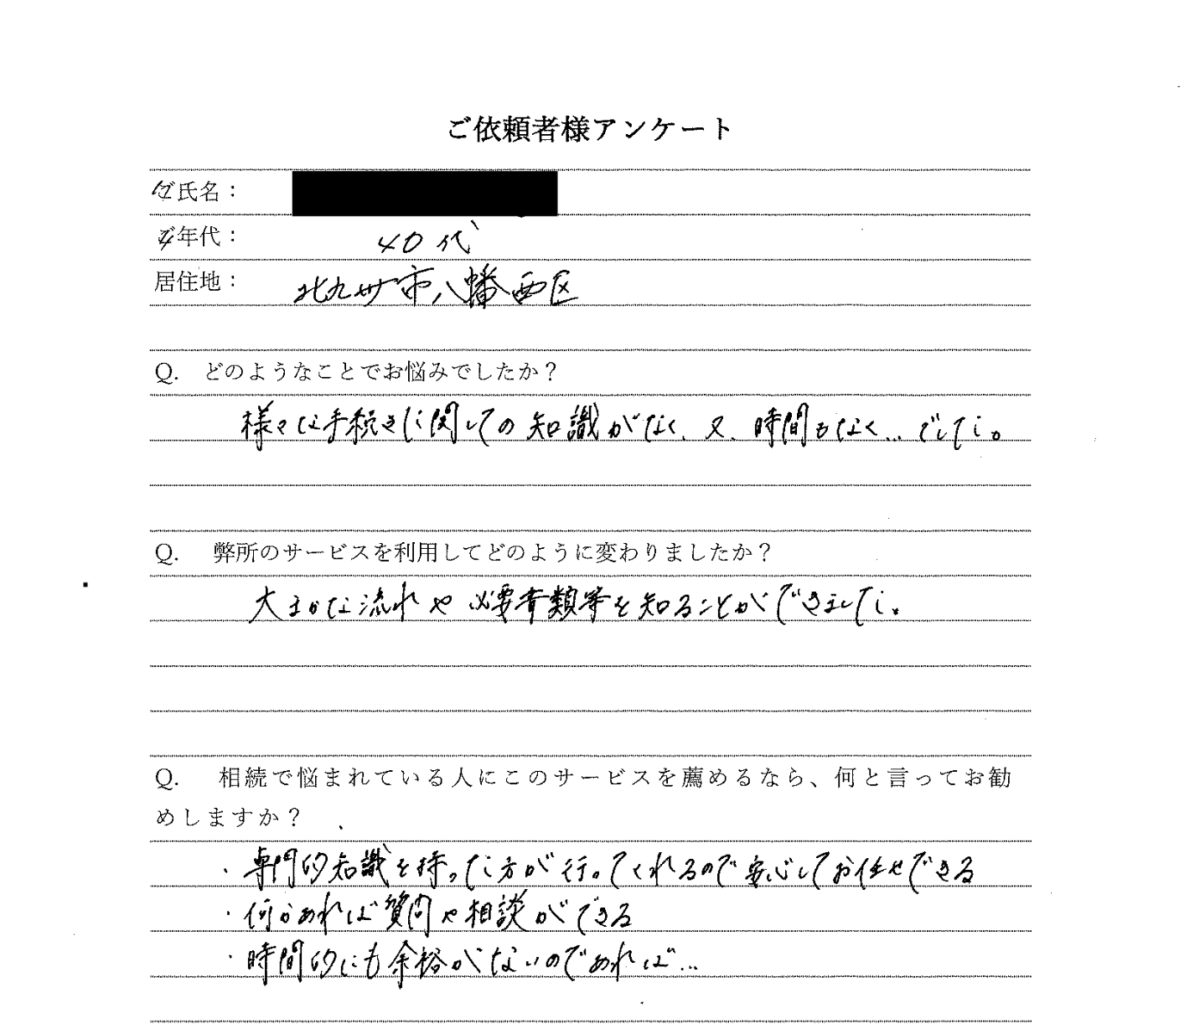 ご依頼者様アンケート
ご氏名：
ご年代： 40代
居住地： 北九州市八幡西区
Q. どのようなことでお悩みでしたか？
様々な手続きに関しての知識がなく、又、時間もなく…でした。
Q. 弊所のサービスを利用してどのように変わりましたか？
大まかな流れや必要書類等を知ることができました。
Q. 相続で悩まれている人にこのサービスを薦めるなら、何と言ってお勧
めしますか？
・専門的知識を持った方が行ってくれるので安心してお任せできる
・何かあれば質問や相談ができる
・時間的にも余裕がないのであれば…